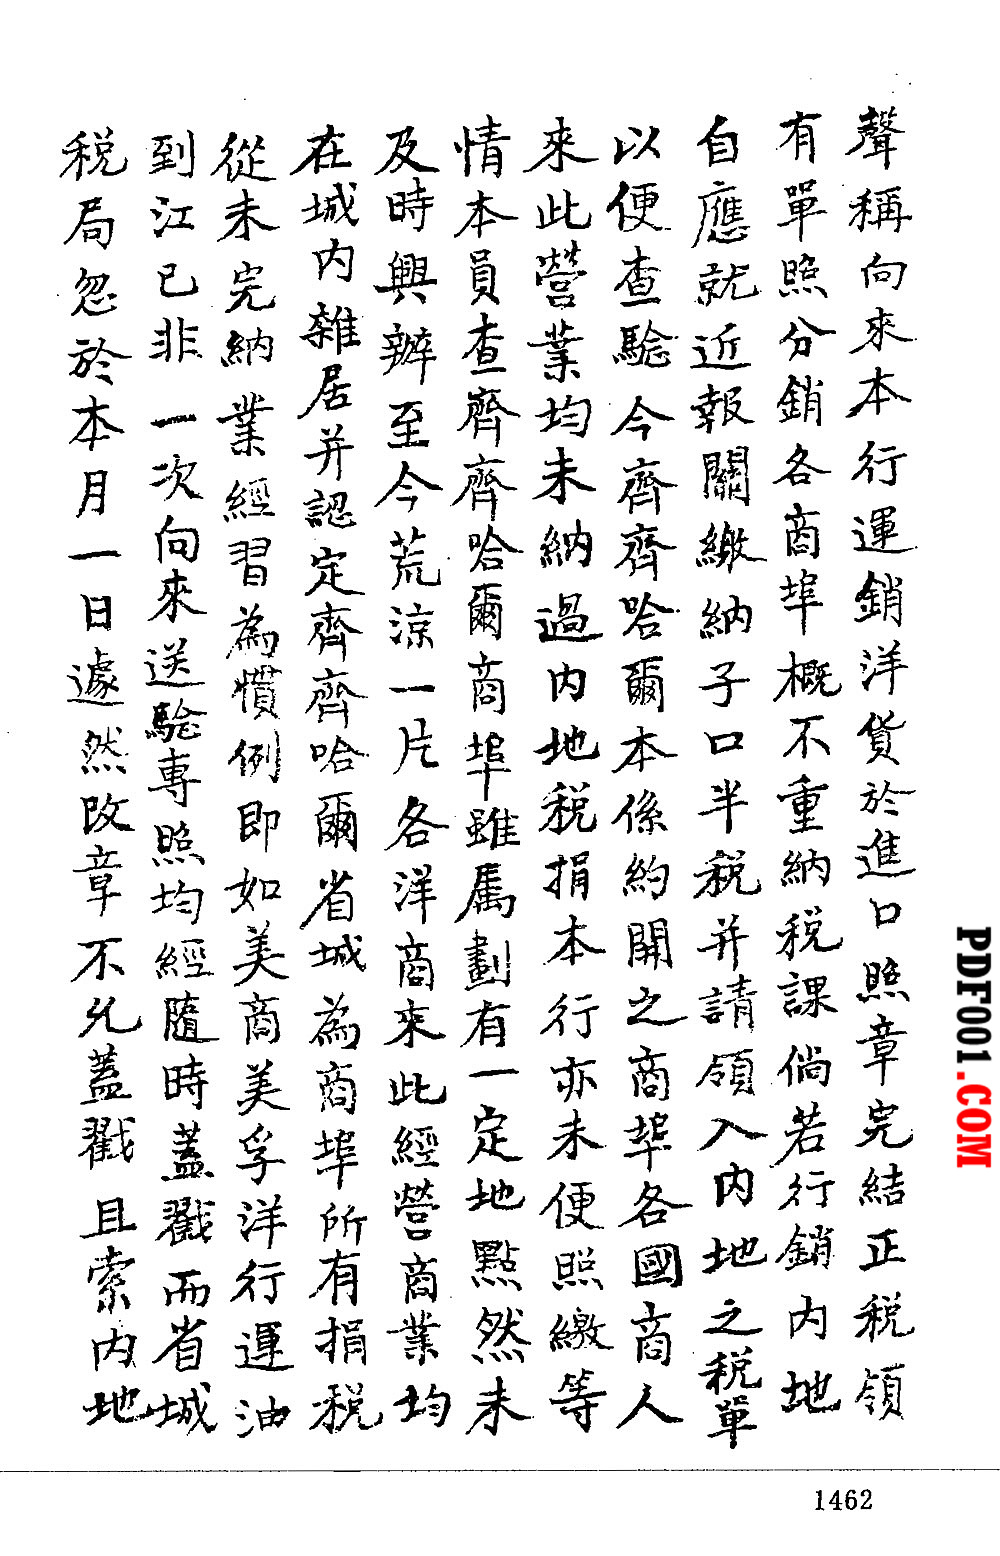 聲稱向來本行運銷洋貨於進口照章完結正税領
有單照分銷各商埠概不重納税課倘若行銷内地
自應就近報關繳納子口半税并請領入内地之税單
以便查驗今齊齊哈爾本係約開之商埠各國商人
來此營業均未納過内地税捐本行亦未便照繳等
情本員查齊齊哈爾商埠雖属劃有一定地點然未
及時興辦至今荒凉一片各洋商來此經營商業均
在城内雜居并認定齊齊哈爾省城為商埠所有捐税
從未完納業經習為慣例即如美商美孚洋行運油
到江已非一次向來送驗專照均經隨時蓋戳而省城
税局忽於本月一日遽然改章不允蓋戳且索内地
PDF001.COM
1462